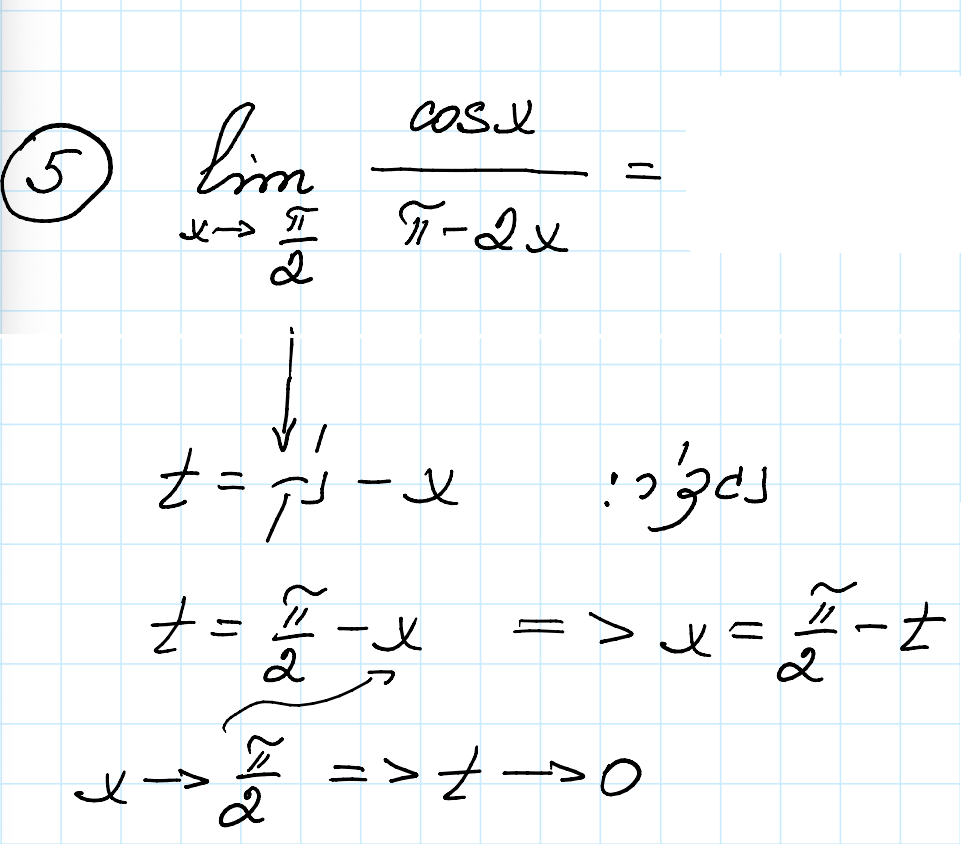 ⑤ lim x→π/2 cosx / (π-2x) =
t = 'נק - x
t = π/2 - x => x = π/2 - t
x → π/2 => t → 0